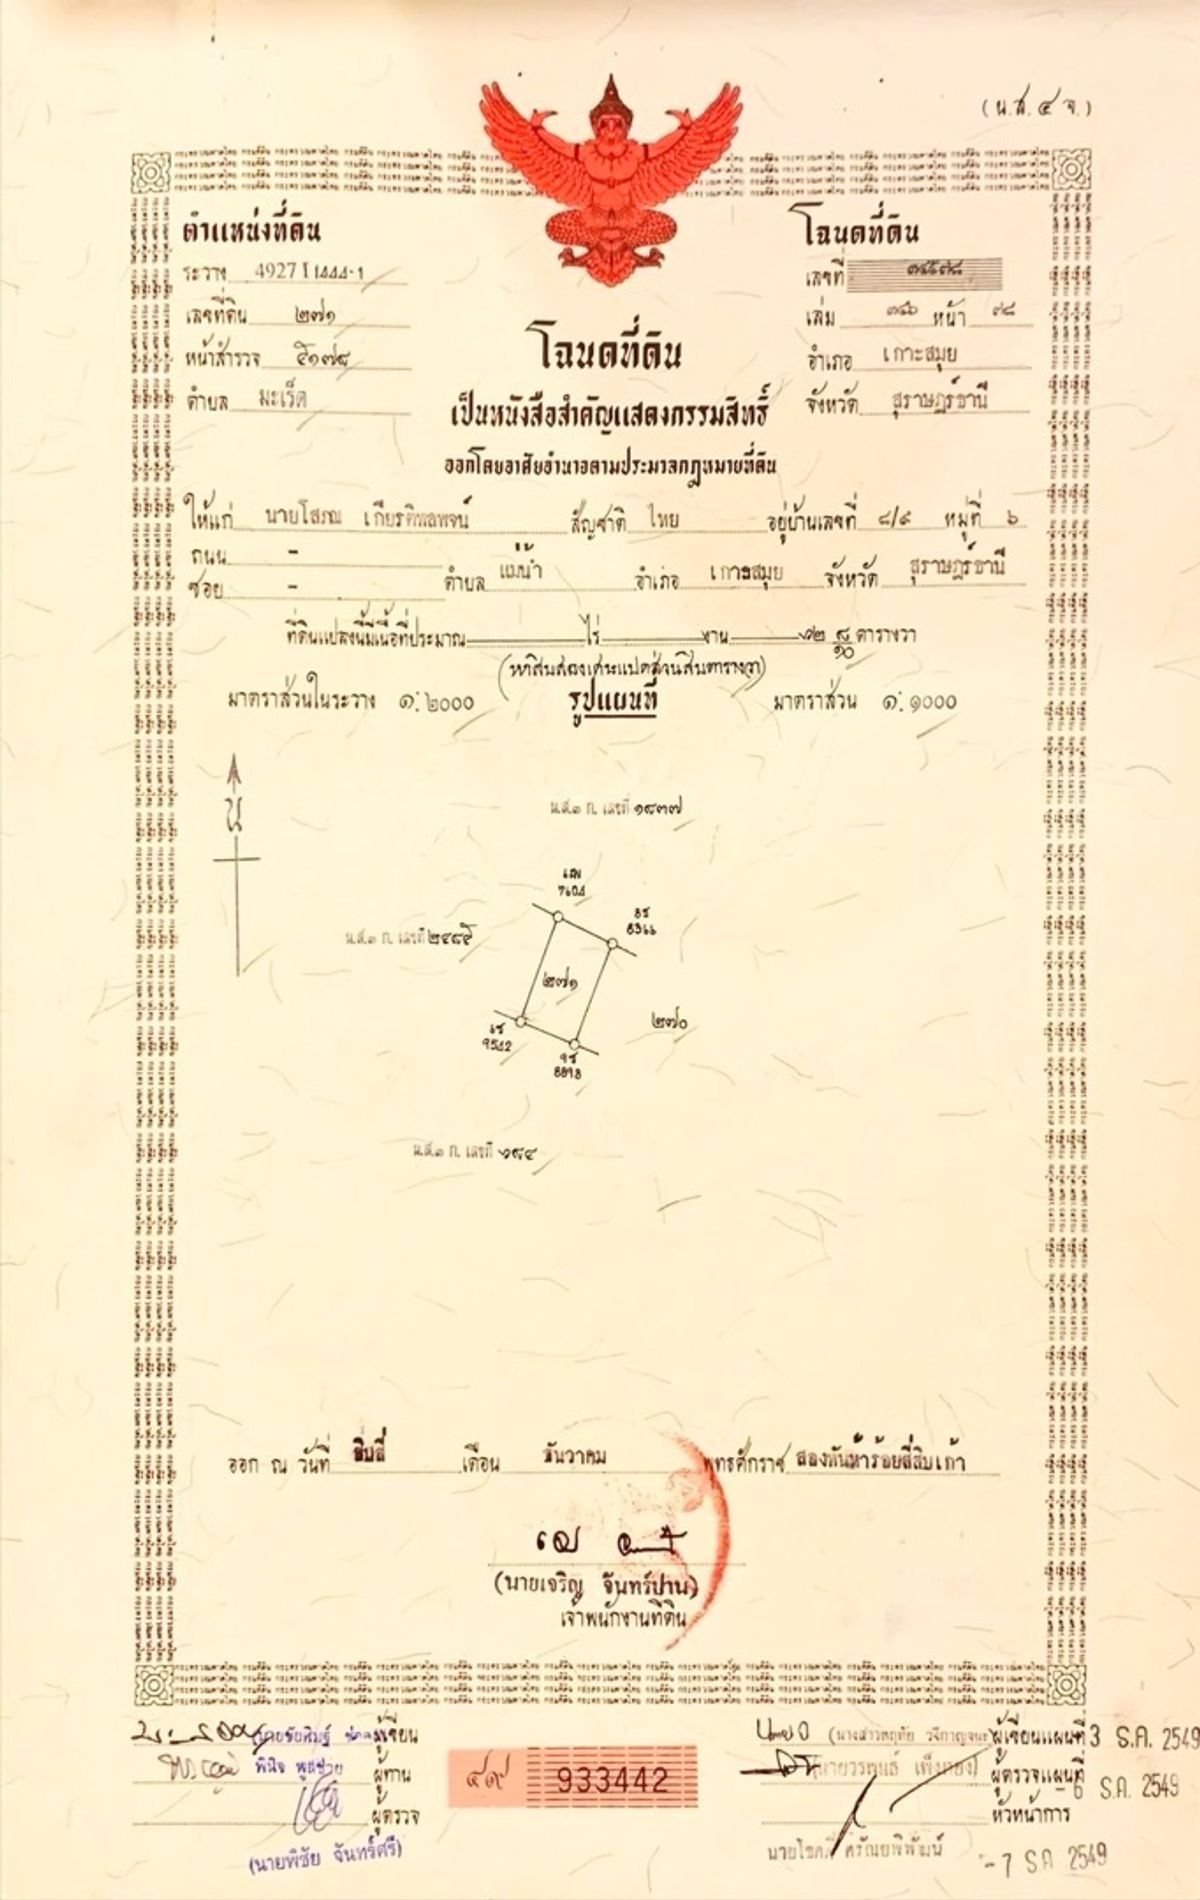 (น.ส. ๔ จ.)
ตำแหน่งที่ดิน
โฉนดที่ดิน
ระวาง 4927 I 1444-1
เลขที่
เลขที่ดิน ๒๗๑
เล่ม หน้า ๙๘
หน้าสำรวจ ๕๑๗๘
โฉนดที่ดิน
อำเภอ เกาะสมุย
ตำบล มะเร็ต
เป็นหนังสือสำคัญแสดงกรรมสิทธิ์
จังหวัด สุราษฎร์ธานี
ออกโดยอาศัยอำนาจตามประมวลกฎหมายที่ดิน
ให้แก่ นายโสภณ เกียรติพลพจน์ สัญชาติ ไทย อยู่บ้านเลขที่ ๘/๙ หมู่ที่ ๖
ถนน -
ซอย - ตำบล แม่น้ำ อำเภอ เกาะสมุย จังหวัด สุราษฎร์ธานี
ที่ดินแปลงนี้มีเนื้อที่ประมาณ ไร่ งาน ๕๒ ๘/๑๐ ตารางวา
(ห้าสิบสองเศษแปดส่วนสิบตารางวา)
มาตราส่วนในระวาง ๑:๒๐๐๐
รูปแผนที่
มาตราส่วน ๑:๑๐๐๐
น
น.ส.๓ ก. เลขที่ ๑๙๓๗
7604
8366
น.ส.๓ ก. เลขที่ ๒๔๙๕
๒๗๑
๒๗๐
9542
8898
น.ส.๓ ก. เลขที่
ออก ณ วันที่ สิบสี่ เดือน ธันวาคม พุทธศักราช สองพันห้าร้อยสี่สิบเก้า
(นายเจริญ จันทร์ปาน)
เจ้าพนักงานที่ดิน
ผู้เขียน
ผู้เขียนแผนที่ 3 ธ.ค. 2549
พินิจ พูลช่วย ผู้ทาน
ผู้ตรวจแผนที่
- 6 ธ.ค. 2549
ผู้ตรวจ
หัวหน้าการ
933442
(นายพิชัย จันทร์ศรี)
- 7 ธ.ค. 2549